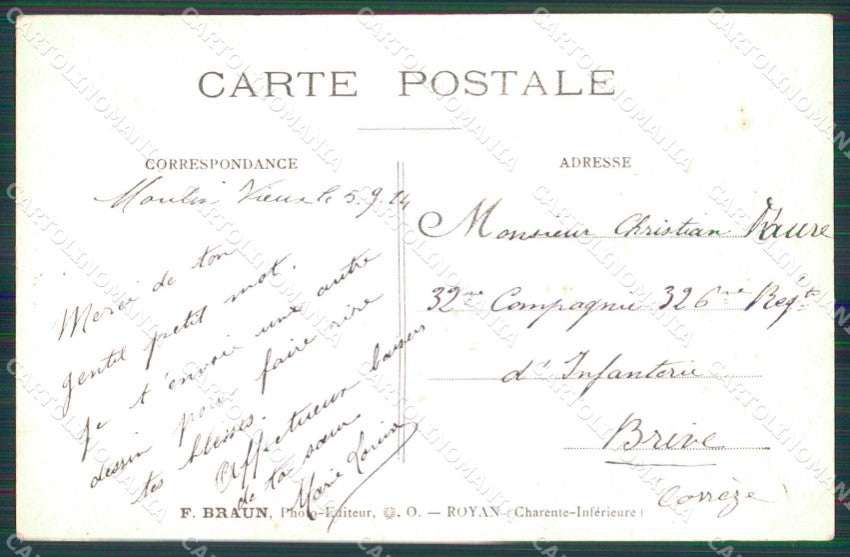 CARTE POSTALE
CORRESPONDANCE
Moulin Vieux le 5.9.14
Merci de ton
gentil petit mot.
Je t'envoie une autre
dessin pour faire rire
tes blessés.
Affectueux baisers
de ta sœur
Marie Louise
ADRESSE
Monsieur Christian Faure
32me Compagnie 326me Regt
d' Infanterie
Brive
(Corrèze)
F. BRAUN, Photo-Editeur, O. — ROYAN (Charente-Inférieure)
CARTOLINOMANIA